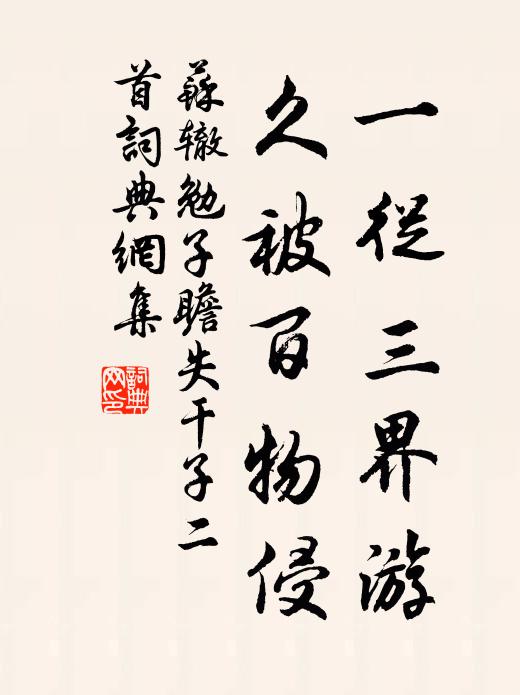 一從三界游
久被百物侵
蘇轍勉子瞻失干子二
首詞典網集
詞典
网印